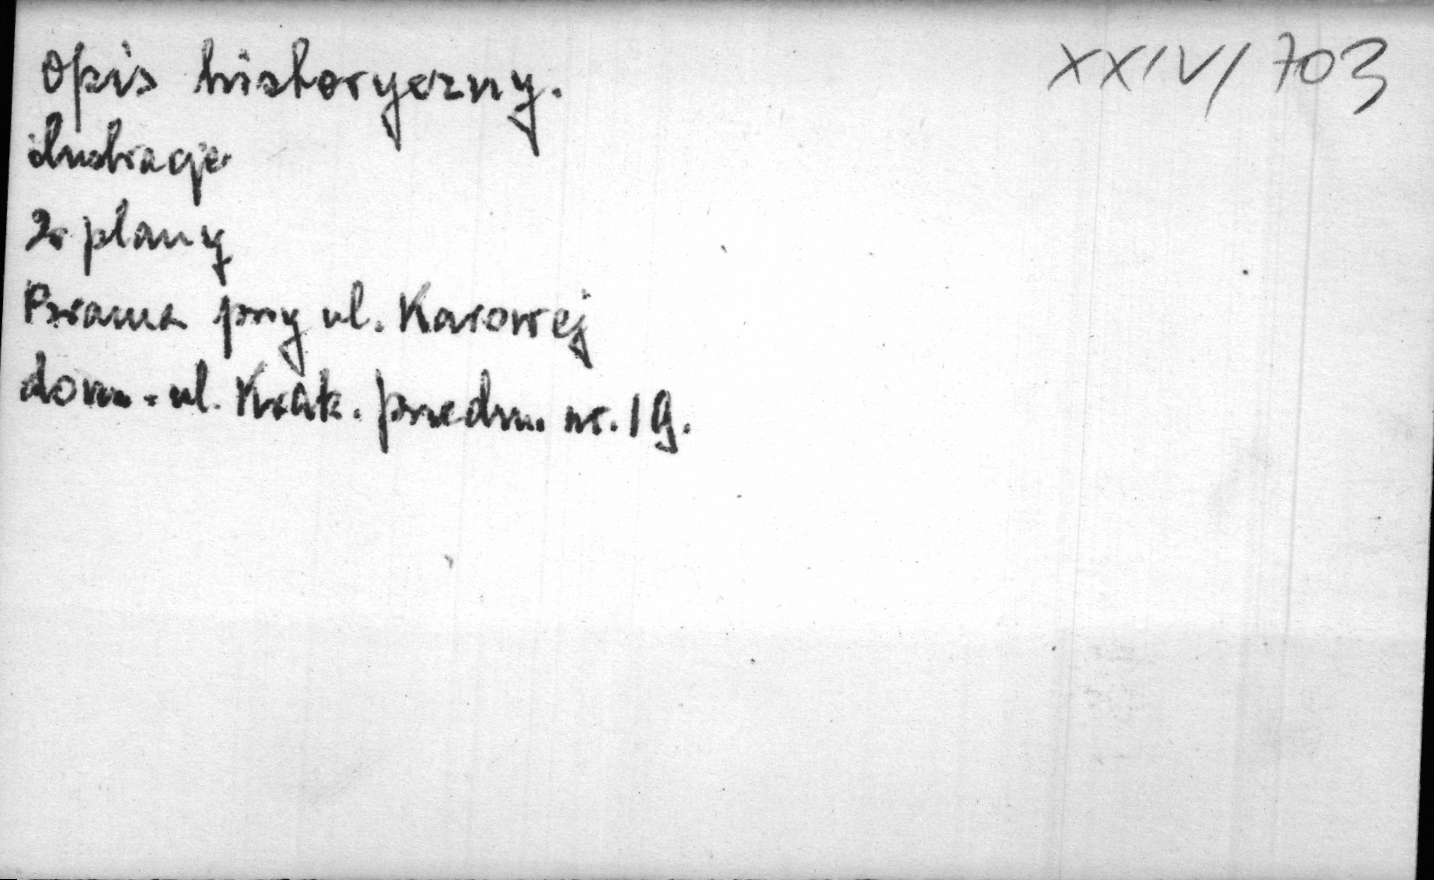 Opis historyczny.
XXIV/703
ilustracje
2 plany
Brama przy ul. Karowej
dom. ul. Krak. przedm. nr. 19.